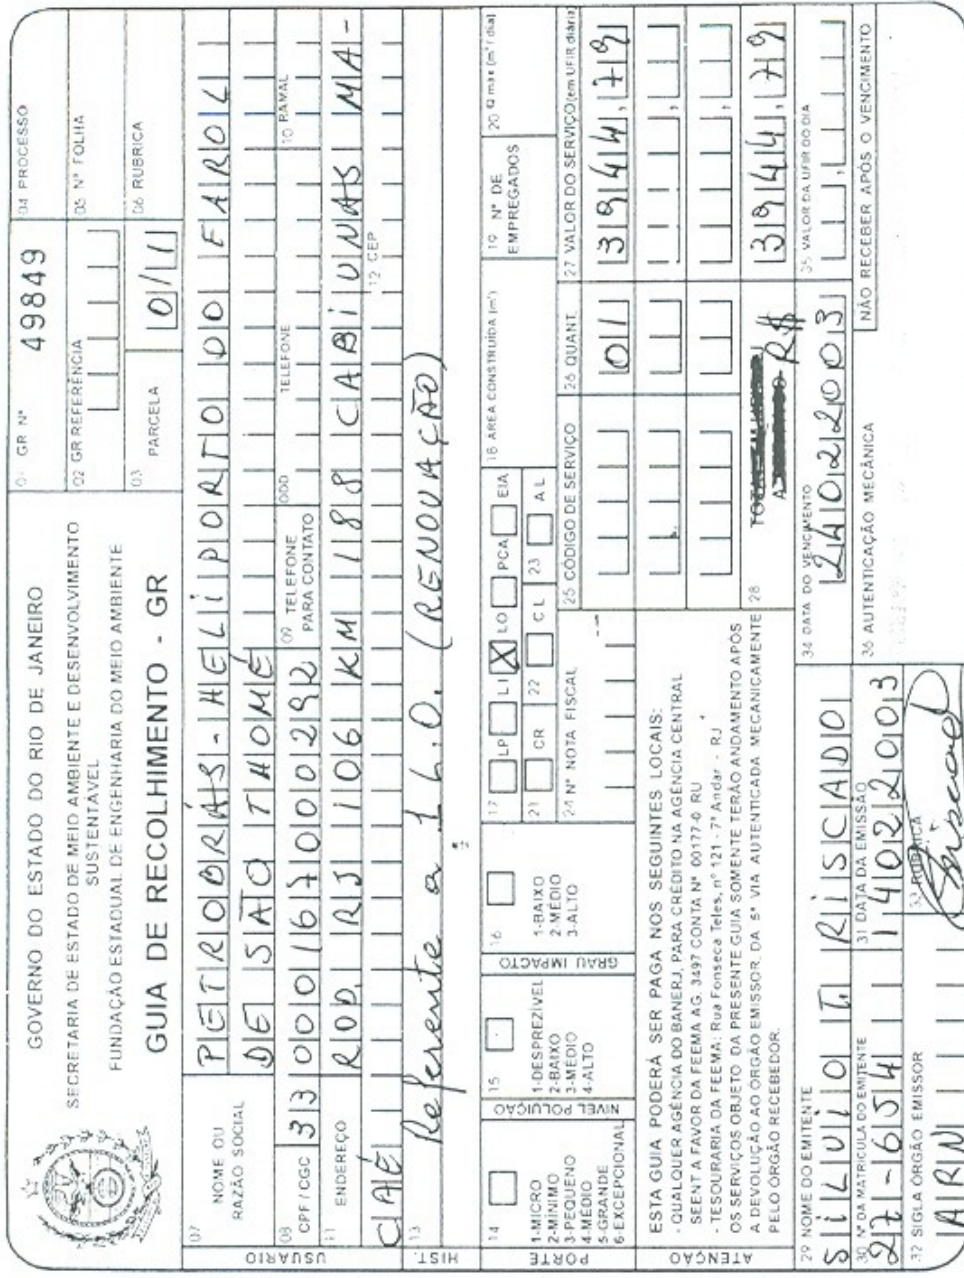 GOVERNO DO ESTADO DO RIO DE JANEIRO
SECRETARIA DE ESTADO DE MEIO AMBIENTE E DESENVOLVIMENTO
SUSTENTÁVEL
FUNDAÇÃO ESTADUAL DE ENGENHARIA DO MEIO AMBIENTE
GUIA DE RECOLHIMENTO - GR
01 GR Nº 49849
04 PROCESSO
02 GR REFERÊNCIA
05 Nº FOLHA
03 PARCELA 0/11
06 RUBRICA
USUÁRIO
07 NOME OU RAZÃO SOCIAL
PETROBRÁS-HELIPORTO DO FAROL
DE SÃO THOMÉ
08 CPF / CGC 33000167000292
09 TELEFONE PARA CONTATO
DDD
TELEFONE
10 RAMAL
11 ENDEREÇO
ROD. RJ 106 KM 188 CABIUNAS MA-
CAÉ
12 CEP
HIST.
13 Referente a L.O. (RENOVAÇÃO)
PORTE
14
1-MICRO
2-MÍNIMO
3-PEQUENO
4-MÉDIO
5-GRANDE
6-EXCEPCIONAL
NÍVEL POLUIÇÃO
15
1-DESPREZÍVEL
2-BAIXO
3-MÉDIO
4-ALTO
GRAU IMPACTO
16
1-BAIXO
2-MÉDIO
3-ALTO
17 LP LI X LO PCA EIA
18 ÁREA CONSTRUÍDA (m²)
19 Nº DE EMPREGADOS
20 Q max (m³/dia)
21 CR 22 CL 23 AL
24 Nº NOTA FISCAL
25 CÓDIGO DE SERVIÇO
26 QUANT.
01
27 VALOR DO SERVIÇO (em UFIR diária)
3944,79
ATENÇÃO
ESTA GUIA PODERÁ SER PAGA NOS SEGUINTES LOCAIS:
- QUALQUER AGÊNCIA DO BANERJ, PARA CRÉDITO NA AGÊNCIA CENTRAL
SEENT A FAVOR DA FEEMA AG. 3497 CONTA Nº 00177-0 RU
- TESOURARIA DA FEEMA: Rua Fonseca Teles, nº 121 - 7º Andar - RJ
OS SERVIÇOS OBJETO DA PRESENTE GUIA SOMENTE TERÃO ANDAMENTO APÓS
A DEVOLUÇÃO AO ÓRGÃO EMISSOR, DA 5ª VIA AUTENTICADA MECANICAMENTE
PELO ÓRGÃO RECEBEDOR.
28 R$
3944,79
29 NOME DO EMITENTE
SILVIO T. RISCADO
34 DATA DO VENCIMENTO
24022003
35 VALOR DA UFIR DO DIA
30 Nº DA MATRÍCULA DO EMITENTE
27-654
31 DATA DA EMISSÃO
14022003
36 AUTENTICAÇÃO MECÂNICA
NÃO RECEBER APÓS O VENCIMENTO
32 SIGLA ÓRGÃO EMISSOR
33 RUBRICA